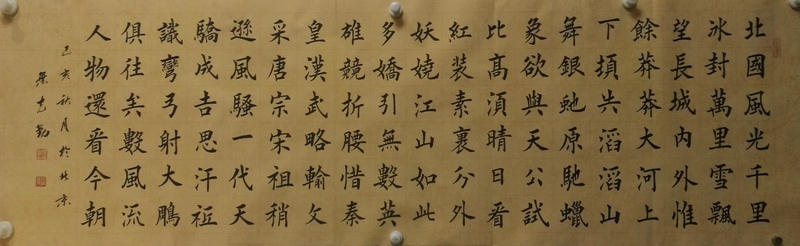 北國風光千里
冰封萬里雪飄
望長城內外惟
餘莽莽大河上
下頓失滔滔山
舞銀虵原馳蠟
象欲與天公試
比高須晴日看
紅裝素裹分外
妖嬈江山如此
多嬌引無數英
雄競折腰惜秦
皇漢武略輸文
采唐宗宋祖稍
遜風騷一代天
驕成吉思汗祗
識彎弓射大鵰
俱往矣數風流
人物還看今朝
己亥秋月於北京